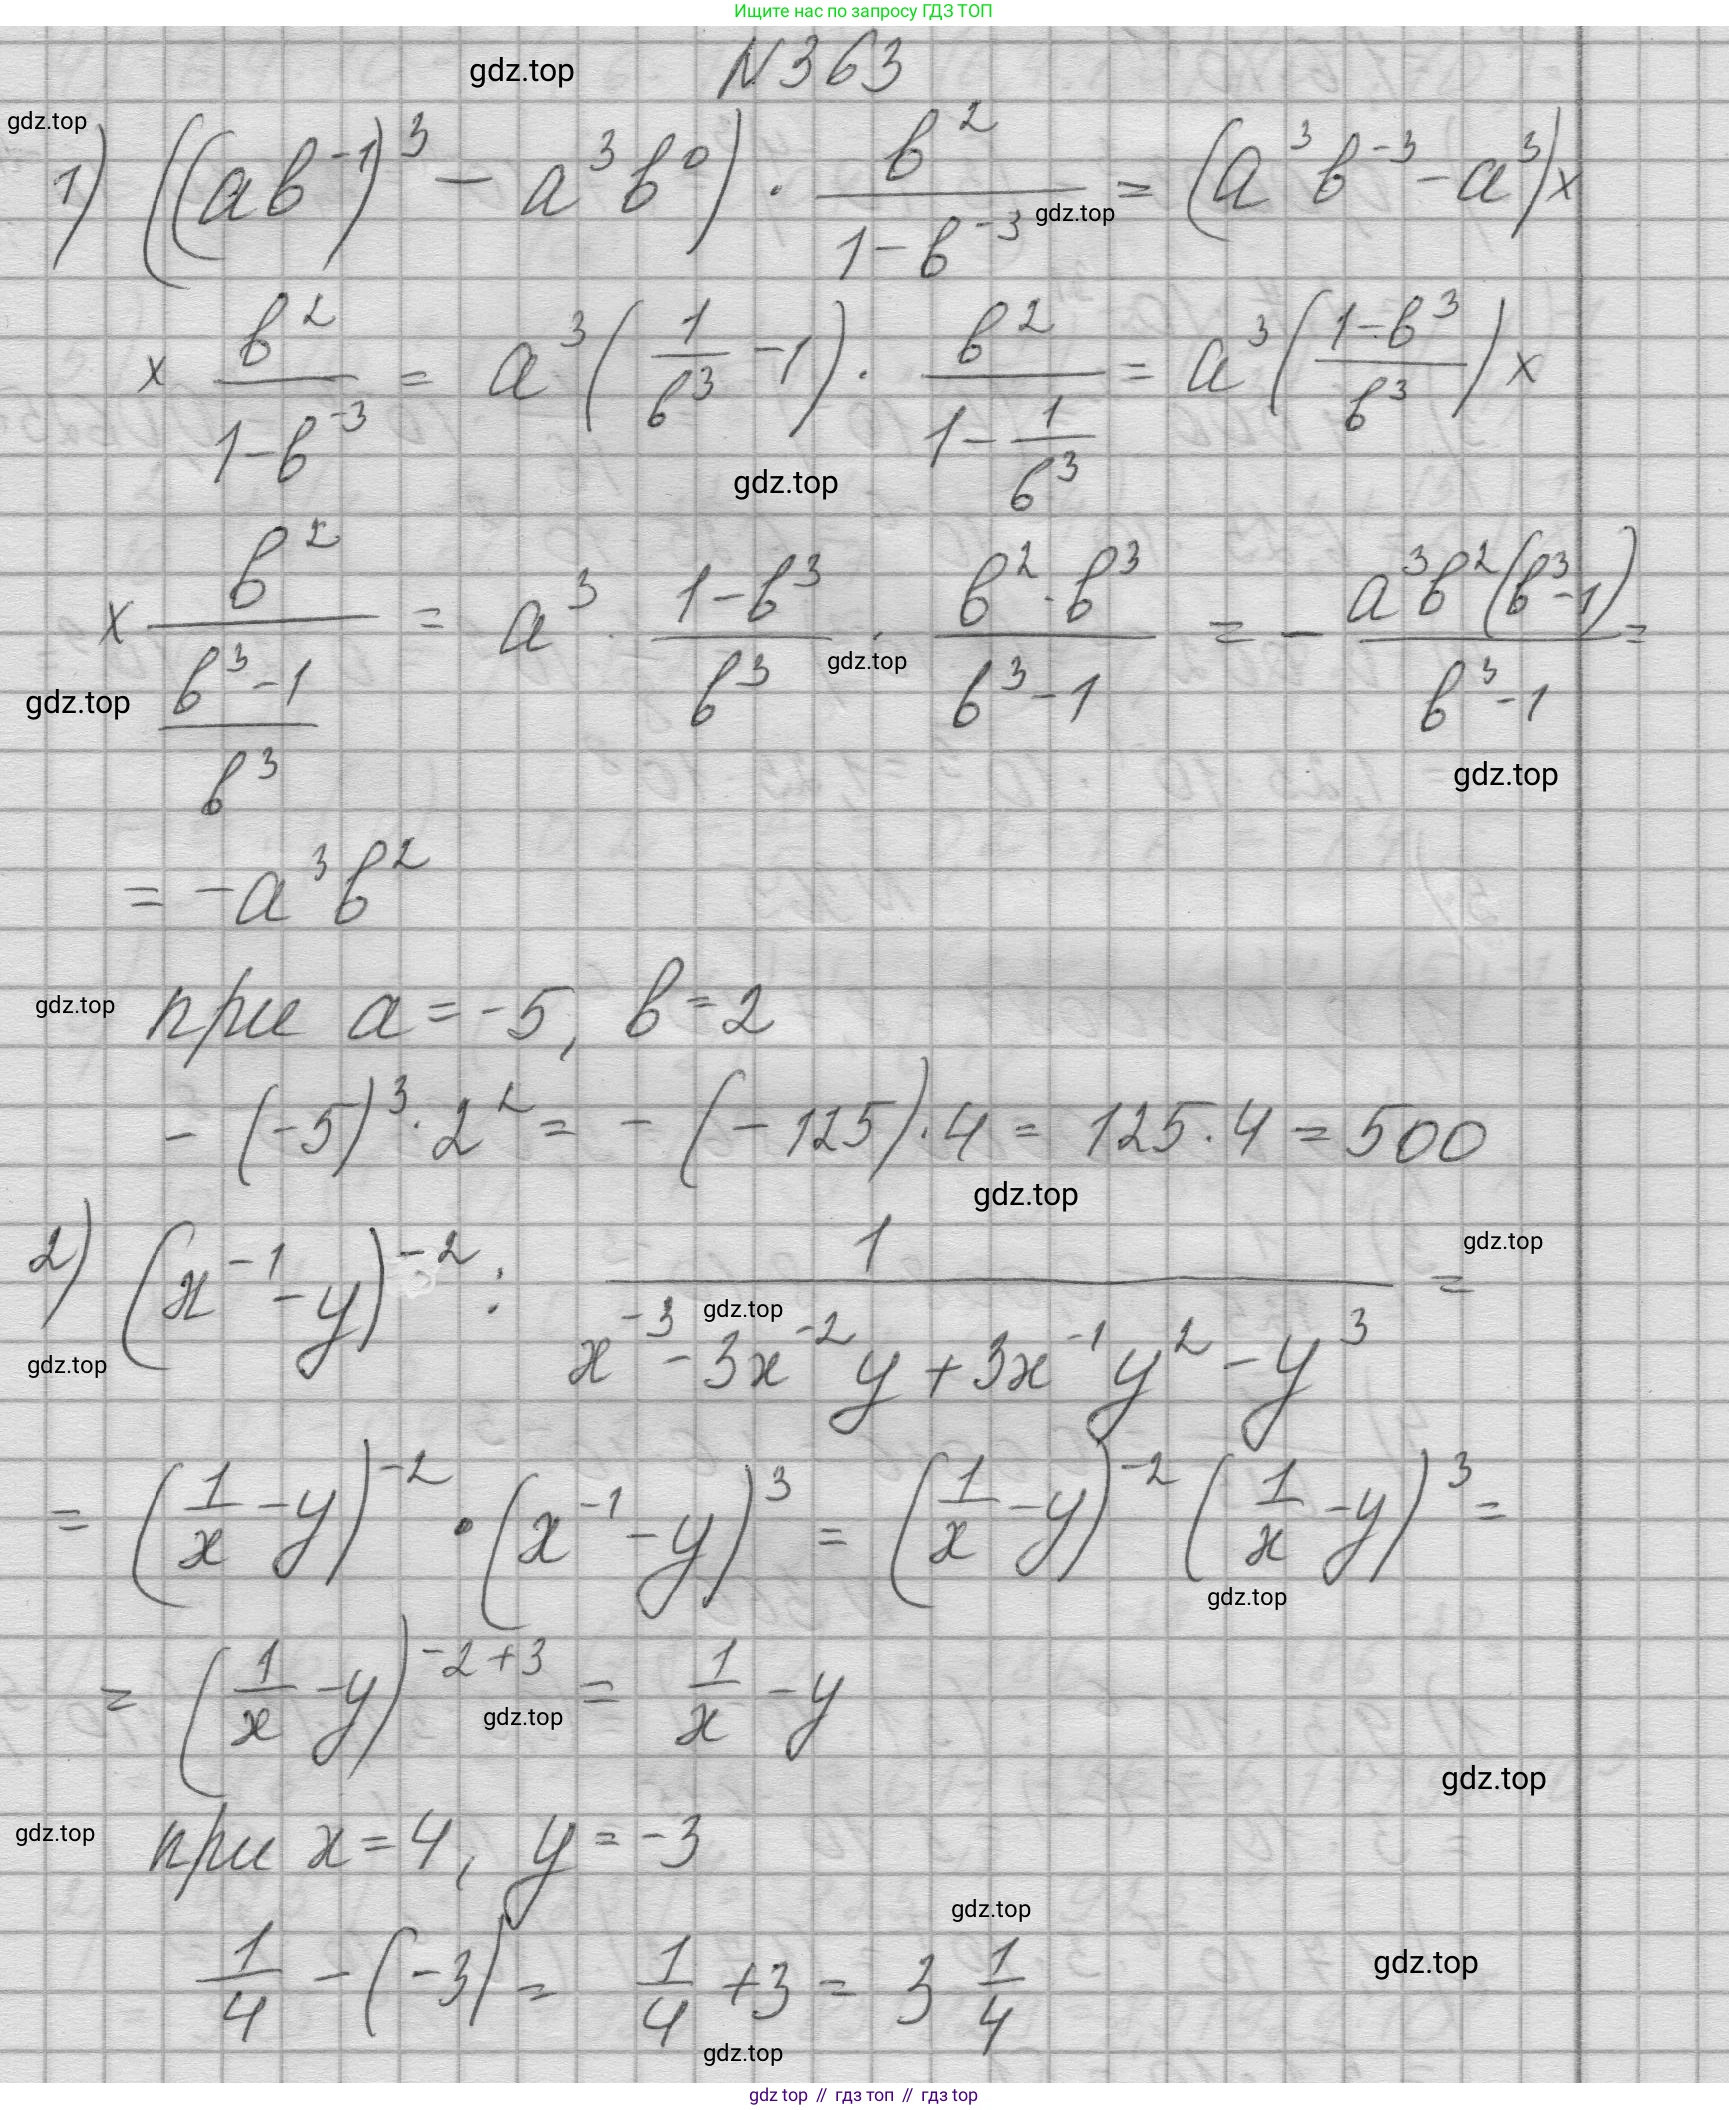 Ищите нас по запросу ГДЗ ТОП
gdz.top
N 363
gdz.top
1) ((ab⁻¹)³ − a³b⁰) · b² / (1−b⁻³) = (a³b⁻³ − a³)×
gdz.top
× b² / (1−b⁻³) = a³(1/b³ − 1) · b² / (1 − 1/b³) = a³((1−b³)/b³)×
gdz.top
× b² / ((b³−1)/b³) = a³ · (1−b³)/b³ · (b²·b³)/(b³−1) = − a³b²(b³−1)/(b³−1) =
gdz.top
gdz.top
gdz.top
= −a³b²
gdz.top
при a = −5, b = 2
− (−5)³ · 2² = − (−125) · 4 = 125 · 4 = 500
gdz.top
gdz.top
2) (x⁻¹ − y)⁻² : 1 / (x⁻³ − 3x⁻²y + 3x⁻¹y² − y³) =
gdz.top
gdz.top
= (1/x − y)⁻² · (x⁻¹ − y)³ = (1/x − y)⁻² (1/x − y)³ =
gdz.top
= (1/x − y)⁻²⁺³ = 1/x − y
gdz.top
gdz.top
gdz.top
при x = 4, y = −3
gdz.top
1/4 − (−3) = 1/4 + 3 = 3 1/4
gdz.top
gdz.top
gdz top // гдз топ // гдз top